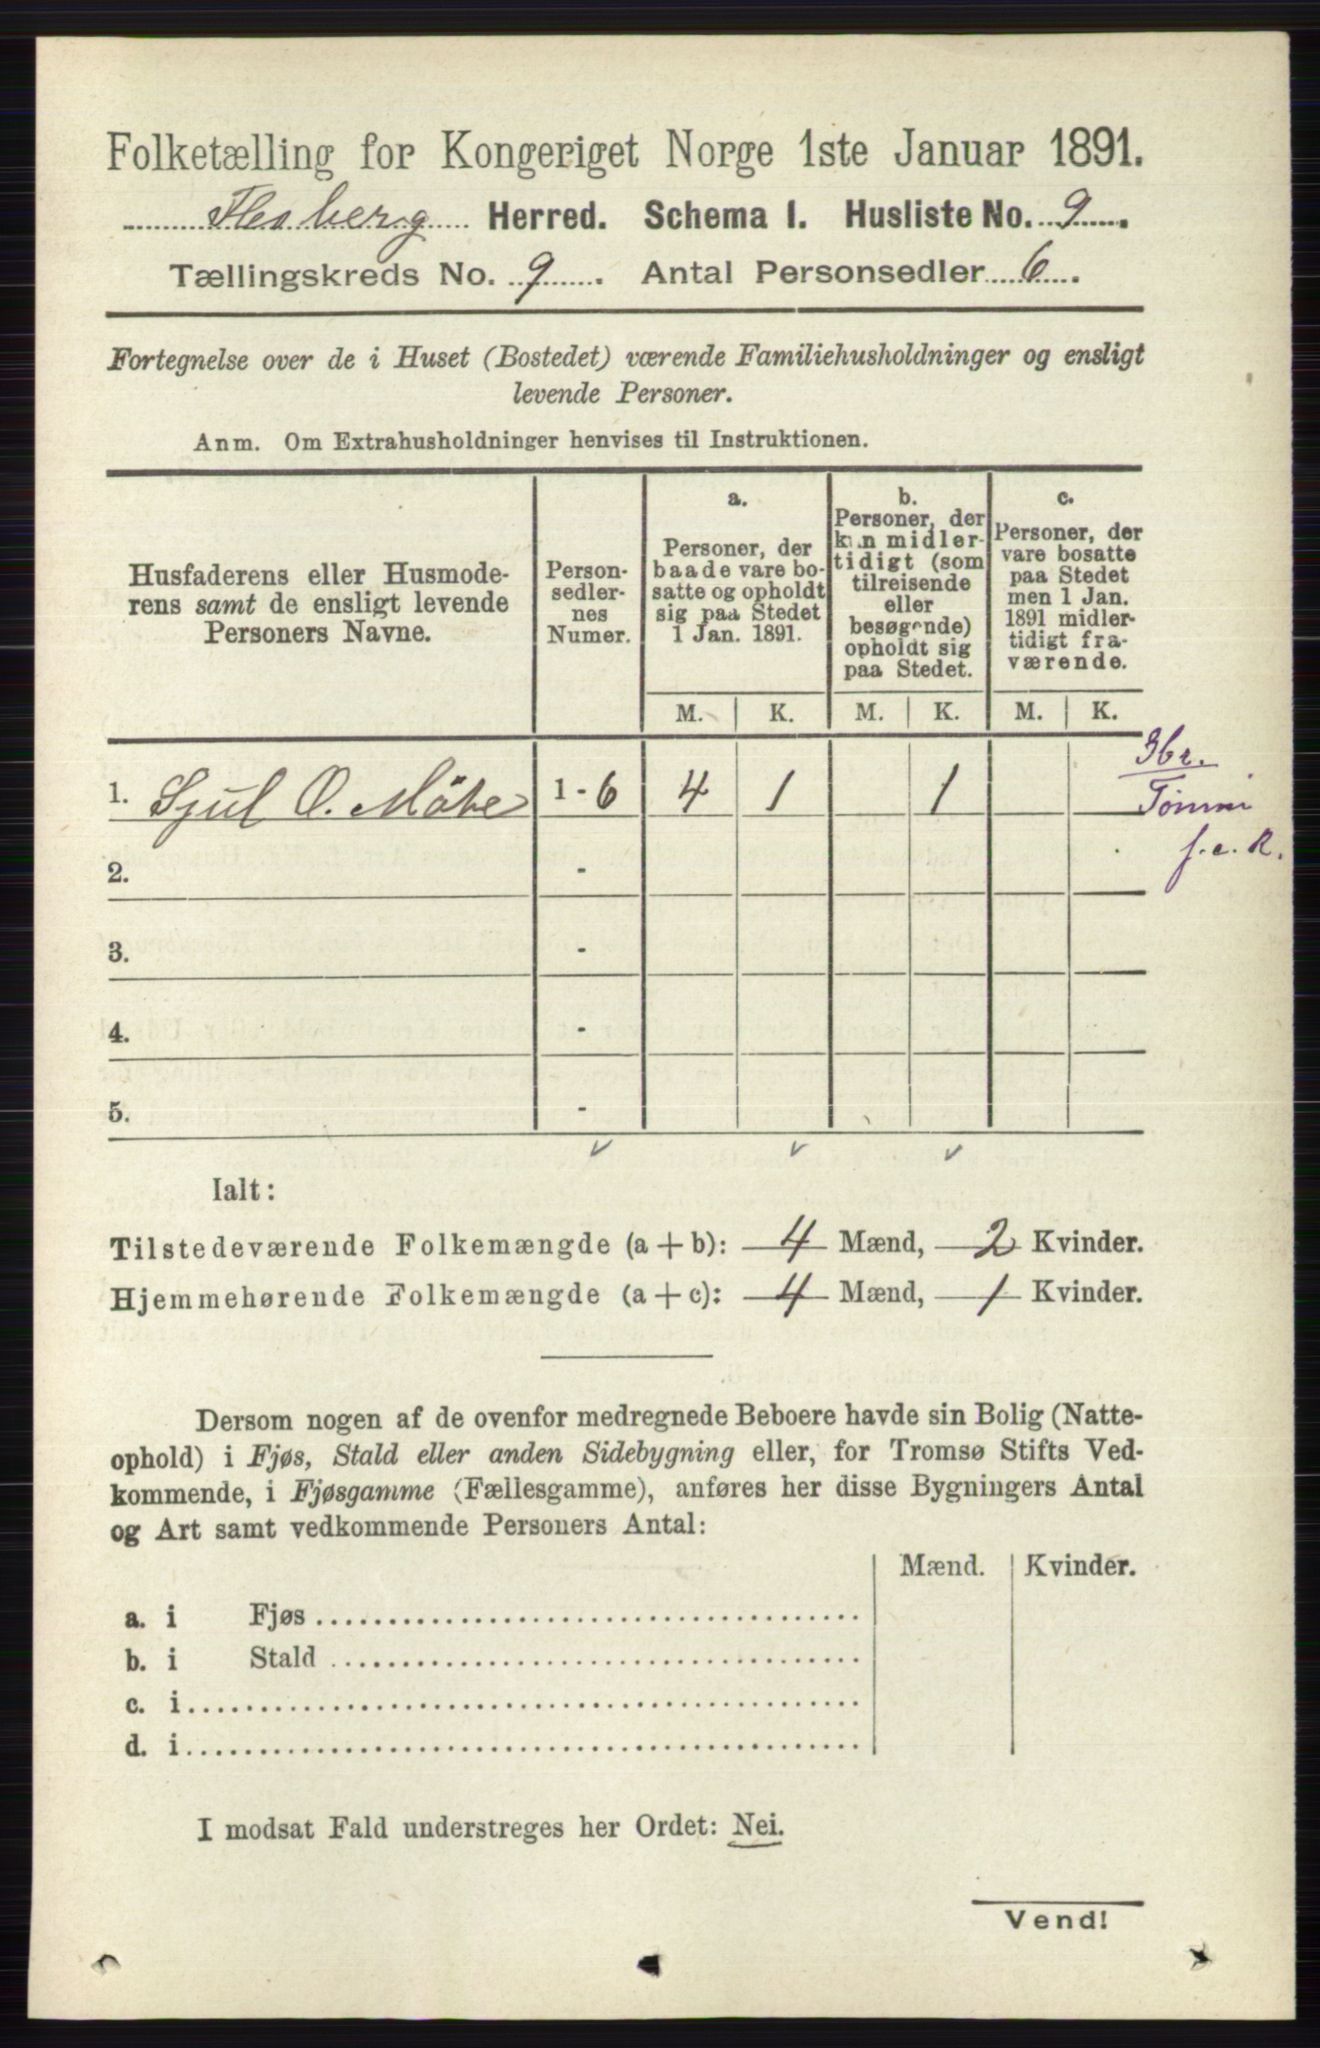 Folketælling for Kongeriget Norge 1ste Januar 1891.
Flesberg Herred. Schema I. Husliste No. 9.
Tællingskreds No. 9. Antal Personsedler 6.
Fortegnelse over de i Huset (Bostedet) værende Familiehusholdninger og ensligt
levende Personer.
Anm. Om Extrahusholdninger henvises til Instruktionen.
Husfaderens eller Husmode-
rens samt de ensligt levende
Personers Navne.
Person-
sedler-
nes
Numer.
a.
Personer, der
baade vare bo-
satte og opholdt
sig paa Stedet
1 Jan. 1891.
b.
Personer, der
kun midler-
tidigt (som
tilreisende
eller
besøgende)
opholdt sig
paa Stedet.
c.
Personer, der
vare bosatte
paa Stedet
men 1 Jan.
1891 midler-
tidigt fra-
værende.
M. K. M. K. M. K.
1. Sjul O. 1 - 6 4 1 1
2. -
3. -
4. -
5. -
Ialt:
Tilstedeværende Folkemængde (a + b): 4 Mænd, 2 Kvinder.
Hjemmehørende Folkemængde (a + c): 4 Mænd, 1 Kvinder.
Dersom nogen af de ovenfor medregnede Beboere havde sin Bolig (Natte-
ophold) i Fjøs, Stald eller anden Sidebygning eller, for Tromsø Stifts Ved-
kommende, i Fjøsgamme (Fællesgamme), anføres her disse Bygningers Antal
og Art samt vedkommende Personers Antal:
Mænd. Kvinder.
a. i Fjøs
b. i Stald
c. i
d. i
I modsat Fald understreges her Ordet: Nei.
Vend!